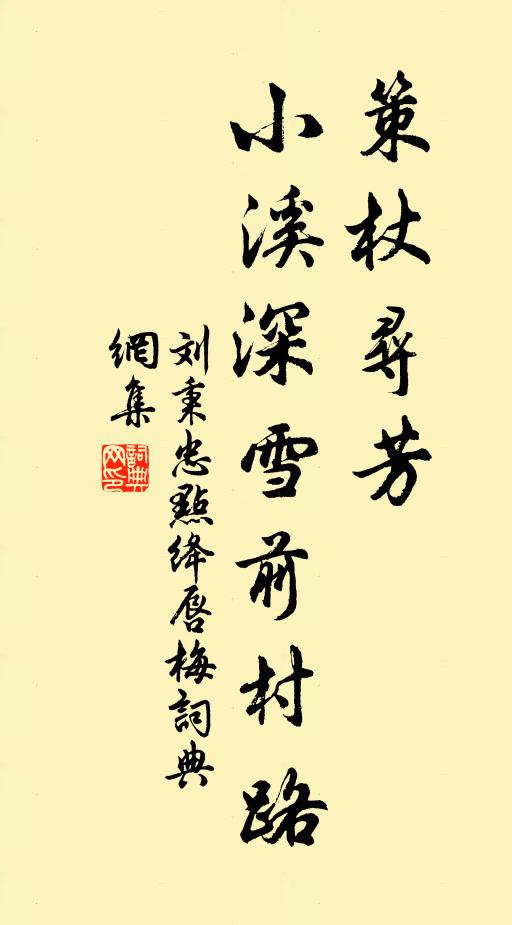 策杖尋芳
小溪深雪前村路
刘秉忠點绛唇梅詞典
網集
詞典
网印